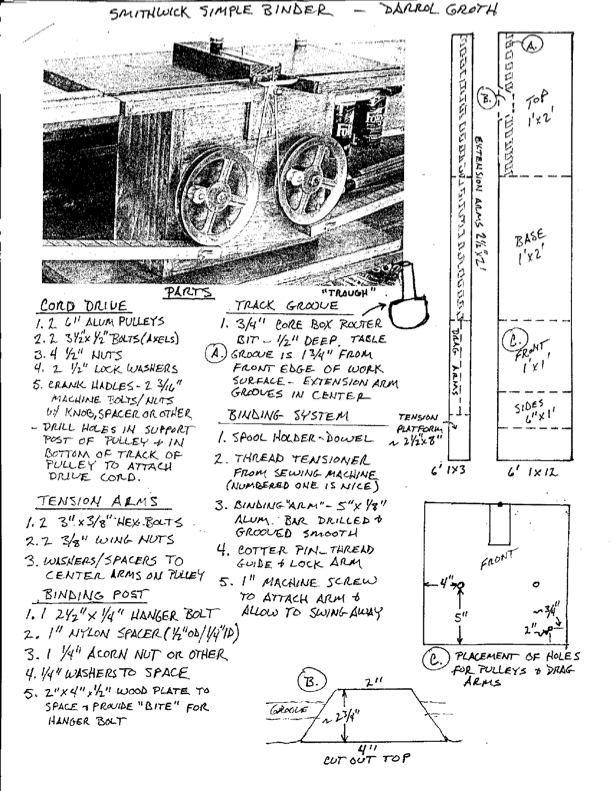 SMITHWICK SIMPLE BINDER — DARROL GROTH
PARTS
CORD DRIVE
1. 2 6" ALUM PULLEYS
2. 2 3½ x ½" BOLTS (AXELS)
3. 4 ½" NUTS
4. 2 ½" LOCK WASHERS
5. CRANK HADLES - 2 3/16"
MACHINE BOLTS/NUTS
W/ KNOB, SPACER OR OTHER
- DRILL HOLES IN SUPPORT
POST OF PULLEY + IN
BOTTOM OF TRACK OF
PULLEY TO ATTACH
DRIVE CORD.
TENSION ARMS
1. 2 3" x 3/8" HEX. BOLTS
2. 2 3/8" WING NUTS
3. WASHERS/SPACERS TO
CENTER ARMS ON PULLEY
BINDING POST
1. 1 2½" x ¼" HANGER BOLT
2. 1" NYLON SPACER (½"OD/¼"ID)
3. 1 ¼" ACORN NUT OR OTHER
4. ¼" WASHERS TO SPACE
5. 2" x 4" x ½" WOOD PLATE TO
SPACE + PROVIDE "BITE" FOR
HANGER BOLT
"TROUGH"
TRACK GROOVE
1. 3/4" CORE BOX ROUTER
BIT - ½" DEEP. TABLE
A. GROOVE IS 1 3/4" FROM
FRONT EDGE OF WORK
SURFACE - EXTENSION ARM
GROOVES IN CENTER
BINDING SYSTEM
1. SPOOL HOLDER - DOWEL
2. THREAD TENSIONER
FROM SEWING MACHINE
(NUMBERED ONE IS NICE)
3. BINDING "ARM" - 5" x 1/8"
ALUM. BAR DRILLED +
GROOVED SMOOTH
4. COTTER PIN - THREAD
GUIDE + LOCK ARM
5. 1" MACHINE SCREW
TO ATTACH ARM +
ALLOW TO SWING AWAY
A.
B.
TOP
1' x 2'
EXTENSION ARMS 2½ x 2'
BASE
1' x 2'
C.
FRONT
1' x 1'
SIDES
6" x 1'
DRAG ARMS
TENSION
PLATFORM
~ 2½" x 8"
6' 1x3
6' 1x12
FRONT
4"
5"
~ 3/4"
2"
C. PLACEMENT OF HOLES
FOR PULLEYS + DRAG
ARMS
B.
2"
GROOVE
~ 2 3/4"
4"
CUT OUT TOP